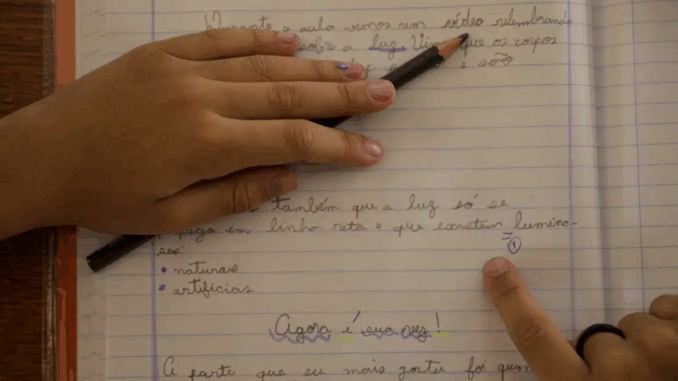 Durante a aula vimos um vídeo relembrando
sobre a luz. Vimos que os corpos
e são
também que a luz só se
paga em linha reta e que existem lumino-
sos:
• naturais
• artificiais
①
Agora é sua vez!
A parte que eu mais gostei foi quan